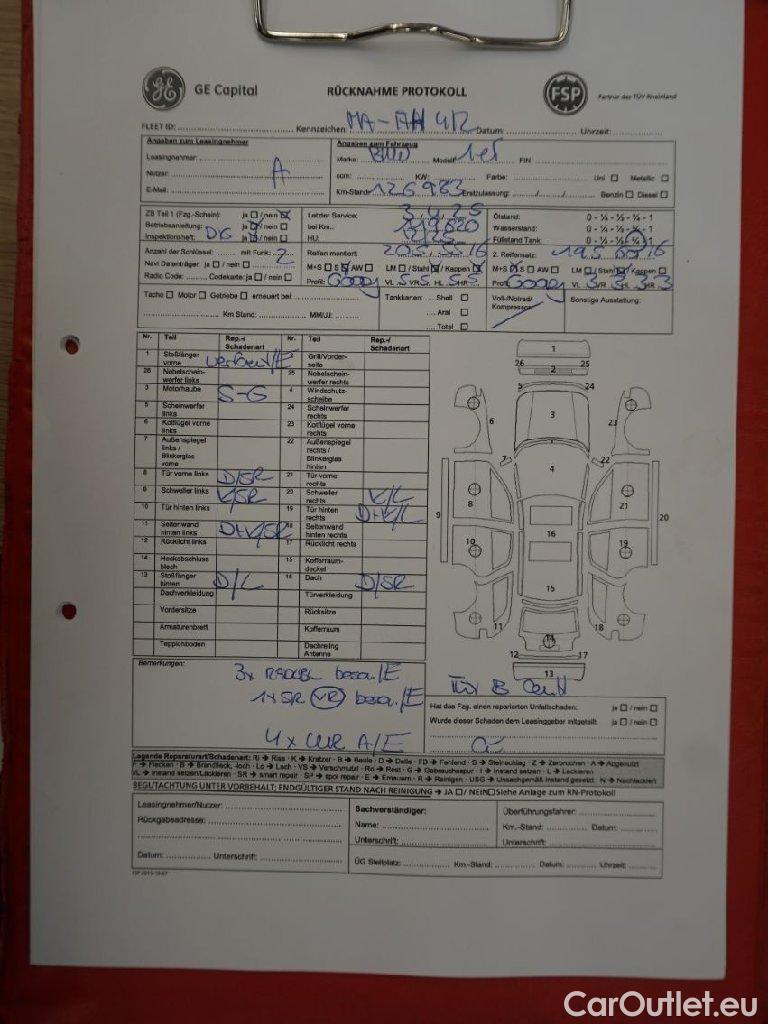 GE Capital
RÜCKNAHME PROTOKOLL
FSP
Partner des TÜV Rheinland
FLEET ID: Kennzeichen MA-AH 412 Datum: Uhrzeit:
Angaben zum Leasingnehmer
Leasingnehmer:
Nutzer: A
E-Mail:
Angaben zum Fahrzeug
Marke BMW Modell FIN
ccm: KW: Farbe: Uni Metallic
Km-Stand: 126983 Erstzulassung: Benzin Diesel
ZB Teil 1 (Fzg.-Schein): ja / nein
Betriebsanleitung: ja / nein
Inspektionsheft: DIG ja / nein
Letzter Service:
bei Km:
HU:
Ölstand: 0 - ¼ - ½ - ¾ - 1
Wasserstand: 0 - ¼ - ½ - ¾ - 1
Füllstand Tank: 0 - ¼ - ½ - ¾ - 1
Anzahl der Schlüssel: mit Funk: 2
Navi Datenträger: ja / nein
Radio Code: Codekarte: ja / nein
Reifen montiert 205 16
M+S S AW LM / Stahl / Kappen
Profil: Goody VL 5 VR 5 HL 5 HR 5
2. Reifensatz: 195 16
M+S S AW LM / Stahl / Kappen
Profil: Goody VL 3 VR 3 HL 3 HR 3
Tacho Motor Getriebe erneuert bei
Km Stand: MM/JJ:
Tankkarten: Shell
Aral
Total
Voll-/Notrad/
Kompressor
Sonstige Ausstattung:
Nr. Teil Rep.-/ Schadenart Nr. Teil Rep.-/ Schadenart
1 Stoßfänger vorne /E Grill/Vorderseite
26 Nebelscheinwerfer links 25 Nebelscheinwerfer rechts
3 Motorhaube S-G 4 Windschutzscheibe
5 Scheinwerfer links 24 Scheinwerfer rechts
6 Kotflügel vorne links 23 Kotflügel vorne rechts
7 Außenspiegel links / Blinkerglas vorne 22 Außenspiegel rechts / Blinkerglas hinten
8 Tür vorne links D/SR 21 Tür vorne rechts
9 Schweller links K/SR 20 Schweller rechts K/L
10 Tür hinten links 19 Tür hinten rechts D+K/L
11 Seitenwand hinten links D+K/SR 18 Seitenwand hinten rechts
12 Rücklicht links 17 Rücklicht rechts
14 Heckabschlussblech 15 Kofferraumdeckel
13 Stoßfänger hinten D/L 16 Dach D/SR
Dachverkleidung Türverkleidung
Vordersitze Rücksitze
Armaturenbrett Kofferraum
Teppichboden Dachreling Antenne
1
26 25
2
5 24
3
6 23
7 22
4
8 21
9 20
16
10 19
15
11 18
14
12 17
13
Bemerkungen:
3x besch./E
1x SR VR besch./E
4x WR A/E
TÜV B
Hat das Fzg. einen reparierten Unfallschaden: ja / nein
Wurde dieser Schaden dem Leasinggeber mitgeteilt ja / nein
Legende Reparaturart/Schadenart: RI → Riss - K → Kratzer - B → Beule - D → Delle - FD → Fehlend - S → Steinschlag - Z → Zerbrochen - A → Abgenutzt
F → Flecken - B → Brandfleck, -loch - Lo → Loch - VS → Verschmutzt - Ro → Rost - G → Gebrauchsspur - I → Instand setzen - L → Lackieren
I/L → Instand setzen/Lackieren - SR → smart repair - SP → spot repair - E → Erneuern - R → Reinigen - USG → Unsachgemäß instand gesetzt - N → Nachlackiert
BEGUTACHTUNG UNTER VORBEHALT; ENDGÜLTIGER STAND NACH REINIGUNG → JA / NEIN Siehe Anlage zum RN-Protokoll
Leasingnehmer/Nutzer:
Rückgabeadresse:
Datum: Unterschrift:
Sachverständiger:
Name:
Unterschrift:
Überführungsfahrer:
Km.-Stand: Datum:
Unterschrift:
ÜG Stellplatz: Km.-Stand: Datum: Uhrzeit:
CarOutlet.eu